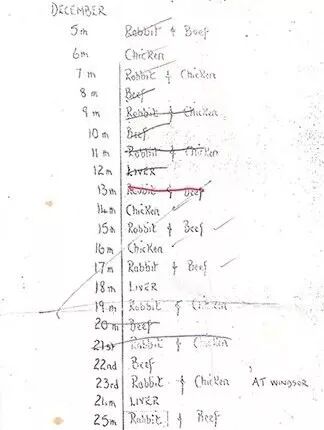 DECEMBER
5th Rabbit & Beef
6th Chicken
7th Rabbit & Chicken
8th Beef
9th Rabbit & Chicken
10th Beef
11th Rabbit & Chicken
12th LIVER
13th Rabbit & Beef
14th Chicken
15th Rabbit & Beef
16th Chicken
17th Rabbit & Beef
18th LIVER
19th Rabbit & Chicken
20th Beef
21st Rabbit & Chicken
22nd Beef
23rd Rabbit & Chicken AT WINDSOR
24th LIVER
25th Rabbit & Beef